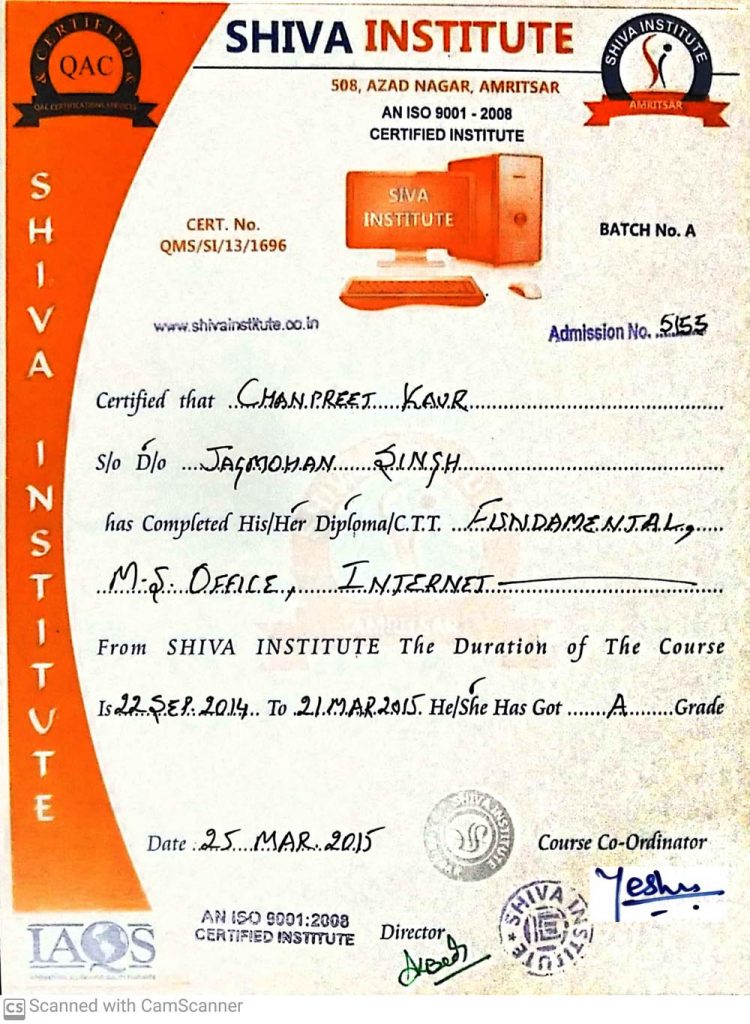 SHIVA INSTITUTE
508, AZAD NAGAR, AMRITSAR
AN ISO 9001 - 2008
CERTIFIED INSTITUTE
CERTIFIED
QAC
QAC CERTIFICATIONS SERVICES
SHIVA INSTITUTE
AMRITSAR
SHIVA INSTITUTE
SIVA
INSTITUTE
CERT. No.
QMS/SI/13/1696
BATCH No. A
www.shivainstitute.co.in
Admission No. ..5155
Certified that ...CHANPREET KAUR
S/o D/o ...JAGMOHAN SINGH
has Completed His/Her Diploma/C.T.T. ...FUNDAMENTAL,
M.S. OFFICE, INTERNET
From SHIVA INSTITUTE The Duration of The Course
Is 22 SEP. 2014.. To .21 MAR 2015. He/She Has Got ......A......Grade
Date .25 MAR. 2015
Course Co-Ordinator
Yeshu
SHIVA INSTITUTE
SHIVA INSTITUTE
AN ISO 9001:2008
CERTIFIED INSTITUTE
Director
IAQS
CS Scanned with CamScanner